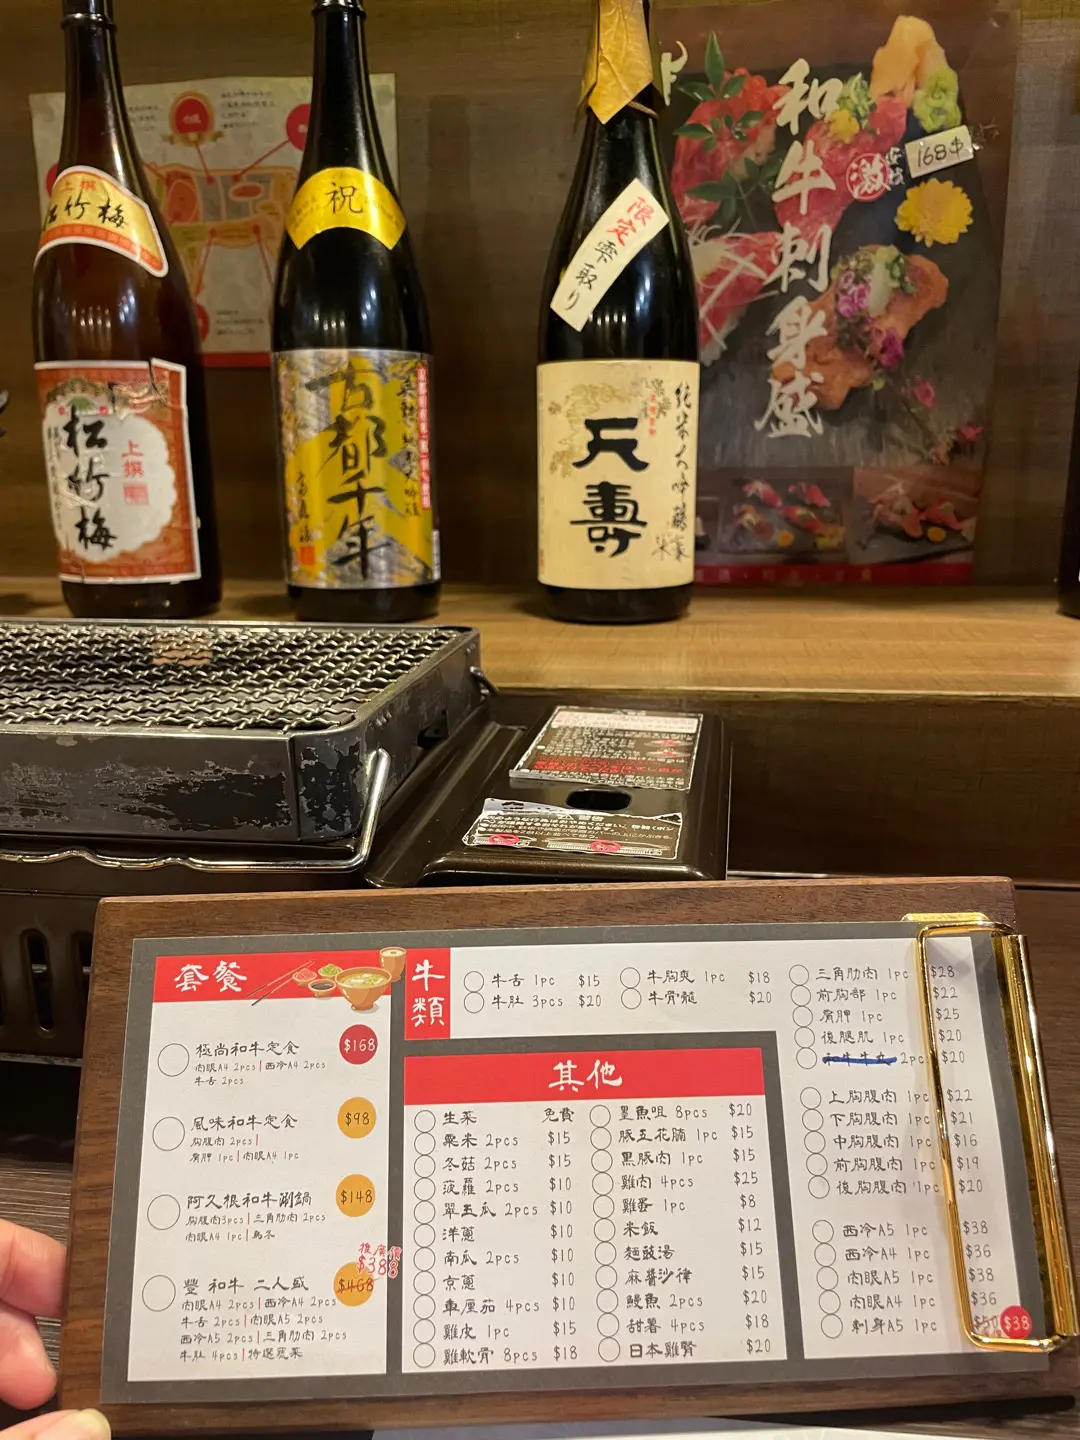 上撰
松竹梅
松竹梅
上撰
祝
古都千年
限定
雫取り
純米大吟醸
天寿
和牛刺身盛
激
168
套餐
極尚和牛定食 $168
肉眼A4 2pcs | 西冷A4 2pcs
牛舌 2pcs
風味和牛定食 $98
胸腹肉 2pcs |
肩胛 1pc | 肉眼A4 1pc
阿久根和牛涮鍋 $148
胸腹肉3pcs | 三角肋肉 2pcs
肉眼A4 1pc | 烏冬
推廣價
$388
豐 和牛 二人盛 $468
肉眼A4 2pcs | 西冷A4 2pcs
牛舌 2pcs | 肉眼A5 2pcs
西冷A5 2pcs | 三角肋肉 2pcs
牛肚 4pcs | 特選蔬菜
牛類
牛舌 1pc $15
牛肚 3pcs $20
牛胸爽 1pc $18
牛骨髓 $20
三角肋肉 1pc $28
前胸部 1pc $22
肩胛 1pc $25
後腿肌 1pc $20
和牛牛丸 2pc $20
上胸腹肉 1pc $22
下胸腹肉 1pc $21
中胸腹肉 1pc $16
前胸腹肉 1pc $19
後胸腹肉 1pc $20
西冷A5 1pc $38
西冷A4 1pc $36
肉眼A5 1pc $38
肉眼A4 1pc $36
刺身A5 1pc $50 $38
其他
生菜 免費
粟米 2pcs $15
冬菇 2pcs $15
菠蘿 2pcs $10
翠玉瓜 2pcs $10
洋蔥 $10
南瓜 2pcs $10
京蔥 $10
車厘茄 4pcs $10
雞皮 1pc $15
雞軟骨 8pcs $18
墨魚咀 8pcs $20
豚五花腩 1pc $15
黑豚肉 1pc $15
雞肉 4pcs $25
雞蛋 1pc $8
米飯 $12
麵豉湯 $15
麻醬沙律 $15
鰻魚 2pcs $20
甜薯 4pcs $18
日本雞腎 $20